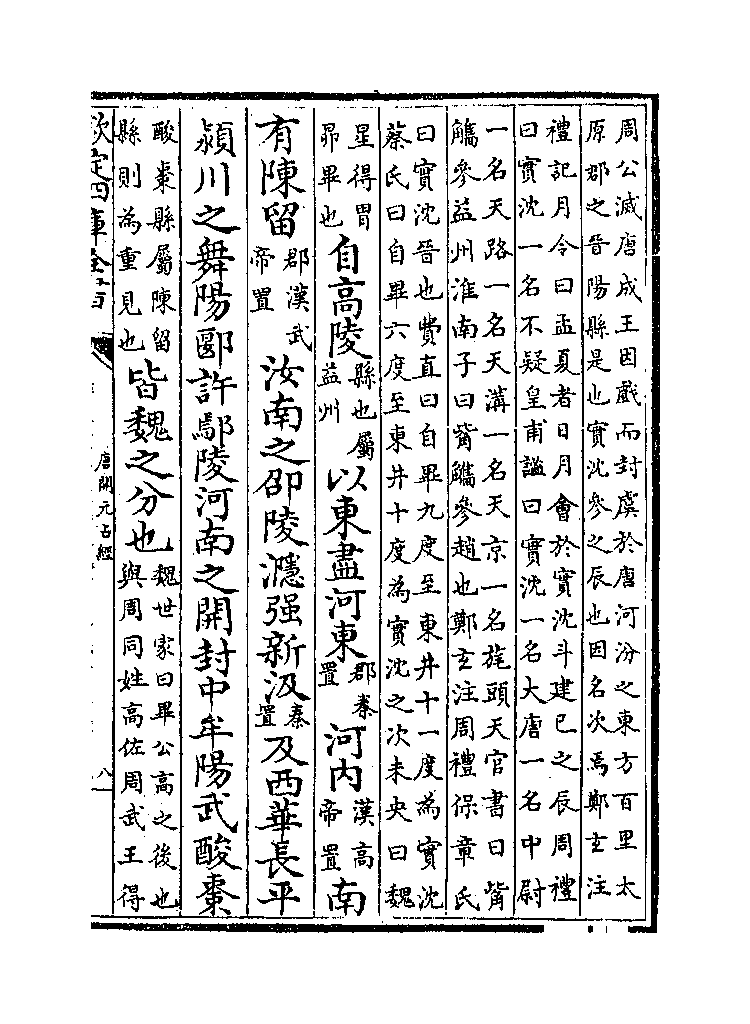 周公滅唐成王因戲而封虞於唐河汾之東方百里太
原郡之晉陽縣是也實沈參之辰也因名次焉鄭𤣥注
禮記月令曰孟夏者日月會於實沈斗建巳之辰周禮
曰實沈一名不疑皇甫謐曰實沈一名大唐一名中尉
一名天路一名天溝一名天京一名旄頭天官書曰觜
觿參益州淮南子曰觜觿參趙也鄭𤣥注周禮保章氏
曰實沈晉也費直曰自畢九度至東井十一度為實沈
蔡氏曰自畢六度至東井十度為實沈之次未央曰魏
星得胃
昴畢也
自高陵
縣也屬
益州
以東盡河東
郡秦
置
河內
漢高
帝置
南
有陳留
郡漢武
帝置
汝南之邵陵㶏强新汲
秦
置
及西華長平
潁川之舞陽郾許鄢陵河南之開封中牟陽武酸棗
酸棗縣屬陳留
縣則為重見也
皆魏之分也
魏世家曰畢公高之後也
與周同姓高佐周武王得
欽定四庫全書
唐開元占經
八